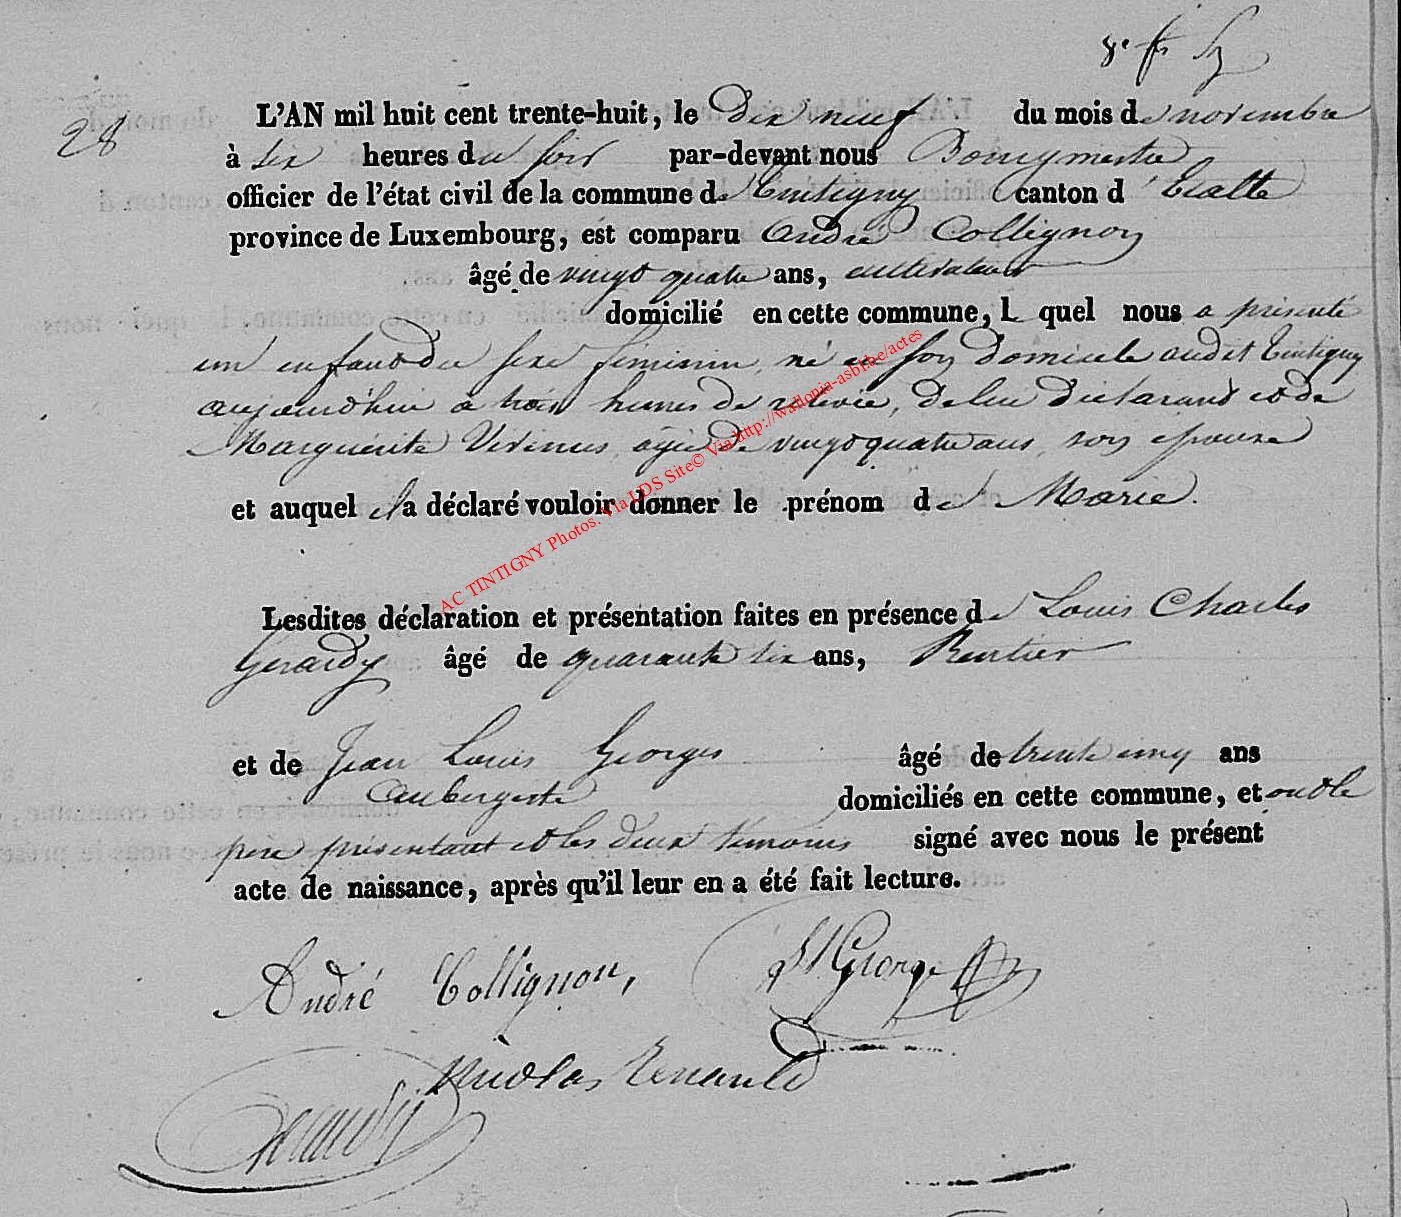 28
L'AN mil huit cent trente-huit, le Dix neuf du mois de novembre
à six heures du soir par-devant nous Bourgmestre
officier de l'état civil de la commune de Tintigny canton d'Etalle
province de Luxembourg, est comparu André Collignon
âgé de vingt quatre ans, cultivateur
domicilié en cette commune, L quel nous a présenté
un enfant du sexe féminin, né en son domicile audit Tintigny
aujourd'hui à trois heures de relevée, de lui déclarant et de
Marguerite agée de vingt quatre ans, son épouse
et auquel il a déclaré vouloir donner le prénom de Marie.
Lesdites déclaration et présentation faites en présence de Louis Charles
Gerardy âgé de quarante six ans, Rentier
et de Jean Louis Georges âgé de trente cinq ans
aubergiste domiciliés en cette commune, et ont le
père présentant et les deux témoins signé avec nous le présent
acte de naissance, après qu'il leur en a été fait lecture.
André Collignon, George
Nicolas Renauld
Gerardy
AC TINTIGNY Photos. Via LDS Site© Via http://wallonia-asbl.be/actes